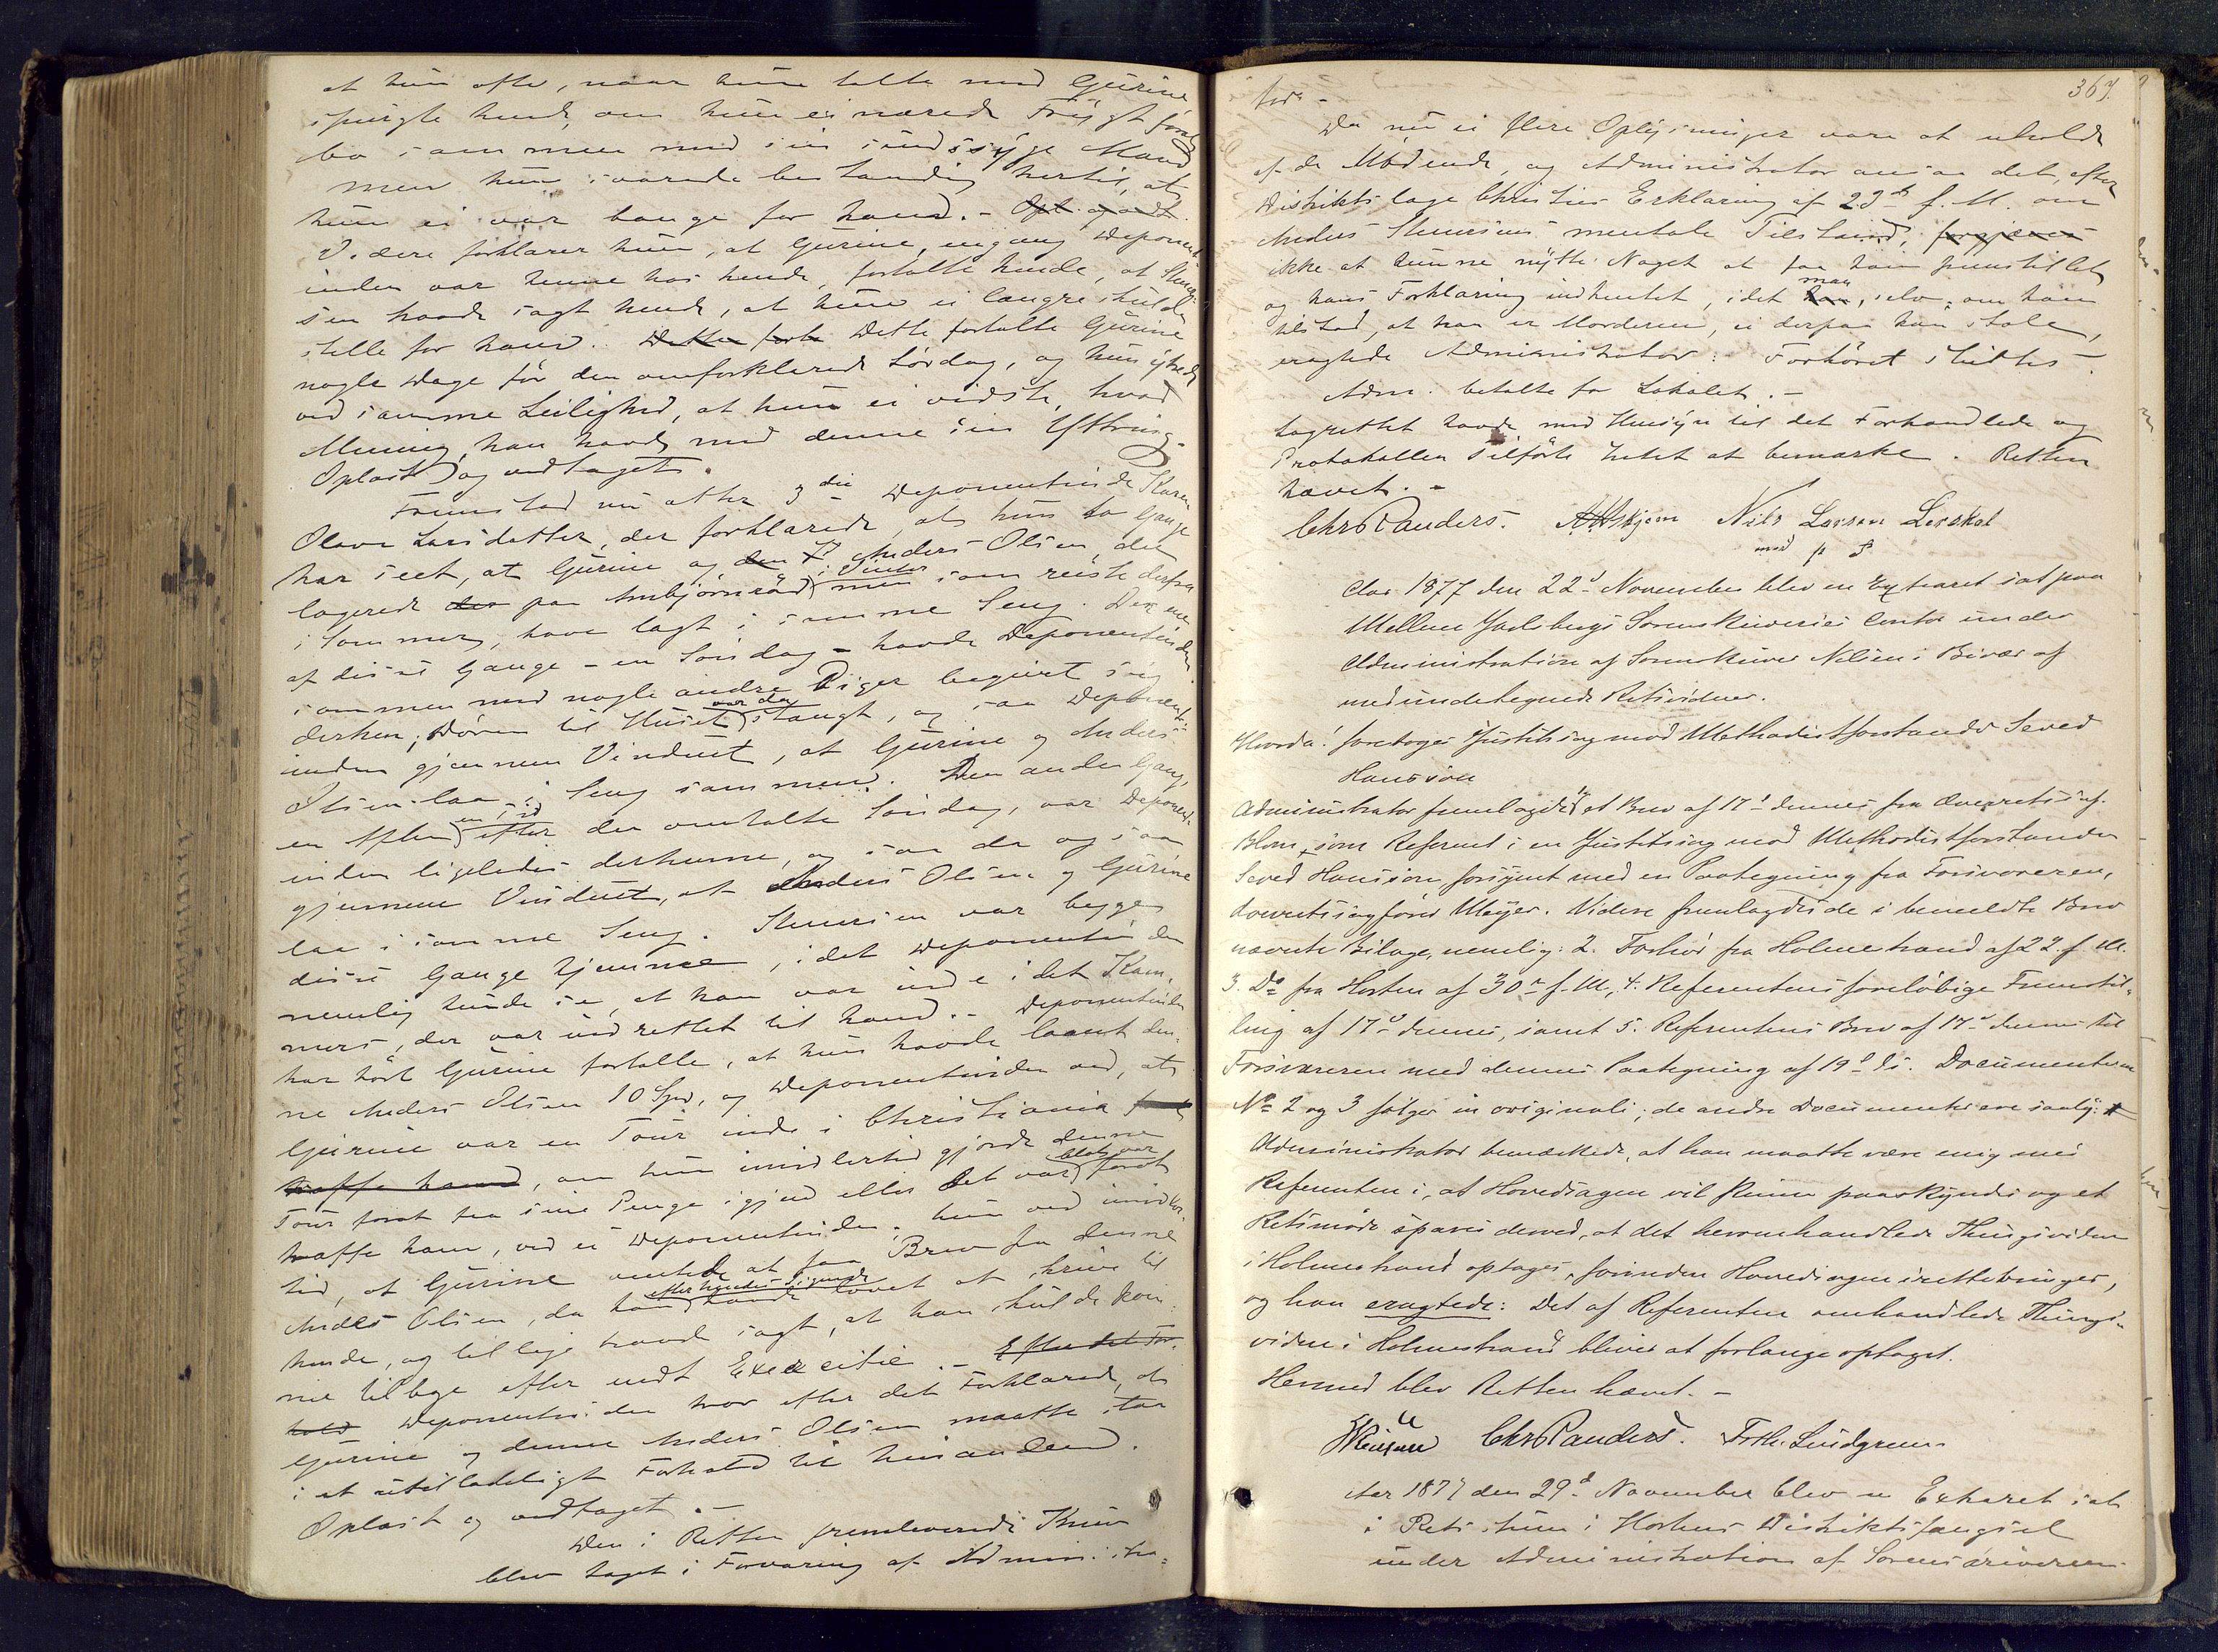 at hun ofte, naar hun talte med Gurine,
spurgte hende, om hun ei nærede Frygt for at
bo sammen med sin sindssyge Mand
men hun svarede bestandig hertil, at
hun ei var bange for ham. -
Videre forklarer hun, at Gurine, engang Deponent-
inden var henne hos hende, fortalte hende, at
sen havde sagt hende, at hun ei længre skulde
stelle for ham. Dette fortalte Gurine
nogle Dage før den omforklarede Lørdag, og hun ytrede
ved samme Leilighed, at hun ei vidste, hvad
Mening han havde med denne sin Yttring.
Oplæst og vedtaget.
Fremstod nu atter 3die Deponentinde Karen
Olave Larsdatter, der forklarede, at hun to Gange
har seet, at Gurine og Anders Olsen, der
logerede paa Ambjørnrød i Vinter men som reiste derfra
i Sommer, have lagt i samme Seng. Den ene
af disse Gange - en Søndag - havde Deponentinden
sammen med nogle andre Piger begivet sig
derhen; Døren til Huset var da stængt, og saa Deponent-
inden gjennem Vinduet, at Gurine og Anders
Olsen laa i Seng sammen. Den anden Gang,
en Aften efter den omtalte Søndag, var Deponent-
inden ligeledes derhenne, og saa da ogsaa
gjennem Vinduet, at Anders Olsen og Gurine
laa i samme Seng. Stensen var begge
disse Gange hjemme, idet Deponentinden
nemlig kunde se, at han var inde i det Kam-
mers, der var indrettet til ham. - Deponentinden
har hørt Gurine fortælle, at hun havde laant den-
ne Anders Olsen 10 Spd, og Deponentinden ved, at
Gurine var en Tour inde i Christiania
træffe ham, om hun imidlertid gjorde denne
Tour forat faa sine Penge igjen eller det blot var forat
træffe ham, ved ei Deponentinden. Hun ved imidler-
tid, at Gurine ventede at faa Brev fra denne
Anders Olsen, da han efter hendes Sigende havde lovet at skrive til
hende, og tillige havde sagt, at han skulde kom-
me tilbage efter endt Exercitie. - Efter det For-
hold Deponentinden hvor efter det Forklarede, at
Gurine og denne Anders Olsen maatte staa
i et utilladeligt Forhold til hinanden.
Oplæst og vedtaget. -
Den i Retten fremleverede Kniv
blev taget i Forvaring af Administra-
367.
tor. -
Da nu ei flere Oplysninger vare at erholde
af de Mødende, og Administrator ansaa det, efter
Distriktslæge Christies Erklæring af 23de f. M. om
Anders Stensens mentale Tilstand,
ikke at kunne nytte Noget at faa ham fremstillet
og hans Forklaring indhentet, idet man, selv om han
tilstod, at han er Morderen, ei derpaa kan stole,
eragtede Administrator: Forhøret sluttes. -
Adm. betalte for Lokalet. -
Lagrettet havde med Hensyn til det Forhandlede og
Protokollen Tilførte Intet at bemærke. Retten
hævet. -
Chr Randers. Nils Larsen Leeskal
med p P
Aar 1877 den 22d November blev en Extraret sat paa
Mellem Jarlsbergs Sorenskriveries Contor under
Administration af Sorenskriver Nilsen i Bivær af
medundertegnede Retsvidner.
Hvorda: foretoges Justitssag mod Methodistforstander Seved
Hansson
Administrator fremlagde et Brev af 17d dennes fra Overretssagf.
Blom, som Referent i en Justitssag mod Methodistforstander
Seved Hansson, forsynet med en Paategning fra Forsvareren,
Overretssagfører Meyer. Videre fremlagdes de i bemeldte Brev
nævnte Bilage, nemlig: 2. Forhør fra Holmestrand af 22 f. M.
3. Do fra Horten af 30te f. M., 4. Referentens foreløbige Fremstil-
ling af 17d dennes, samt 5. Referentens Brev af 17d dennes til
Forsvareren med dennes Paategning af 19d ds. Documenterne
No 2 og 3 følger in originali; de andre Documenter ere saaly:
Administrator bemærkede, at han maatte være enig med
Referenten i, at Hovedsagen vil kunne paaskyndes og et
Retsmøde spares derved, at det herommhandlede Thingsvidne
i Holmestrand optages, forinden Hovedsagen iretteb​ringes,
og han eragtede: Det af Referenten omhandlede Things-
vidne i Holmestrand bliver at forlange optaget.
Hermed blev Retten hævet. -
Nilsen Chr Randers. Frth. Lindgreen
Aar 1877 den 29d November blev en Extraret sat
i Retsstuen i Hortens Distriktsfængsel
under Administration af Sorenskriveren